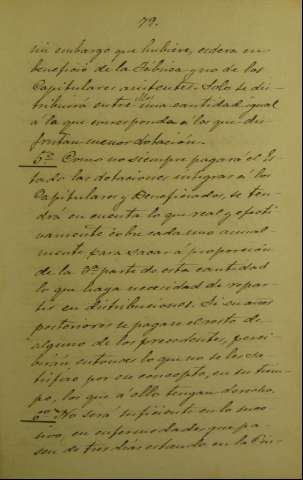 79.
sin embargo que hubiere, cedera en
beneficio de la Fábrica y no de los
Capitulares asistentes. Solo se dis-
tribuirá entre ellos una cantidad igual
á la que corresponda á los que dis-
frutan menor dotación.
5.ª Como no siempre pagará el Es-
tado las dotaciones íntegras á los
Capitulares y Beneficiados, se ten-
drá en cuenta lo que real y efecti-
vamente cobre cada uno anual-
mente para sacar á proporción
de la 5.ª parte de esta cantidad
lo que haya necesidad de repar-
tir en distribuciones. Si en años
posteriores se pagare el resto de
alguno de los precedentes, perci-
birán entonces lo que no se les sa-
tisfizo por ese concepto, en su tiem-
po, los que á ello tengan derecho.
No será suficiente en lo suce-
sivo, en enfermedades que pa-
sen de tres días estando en la Ciu-